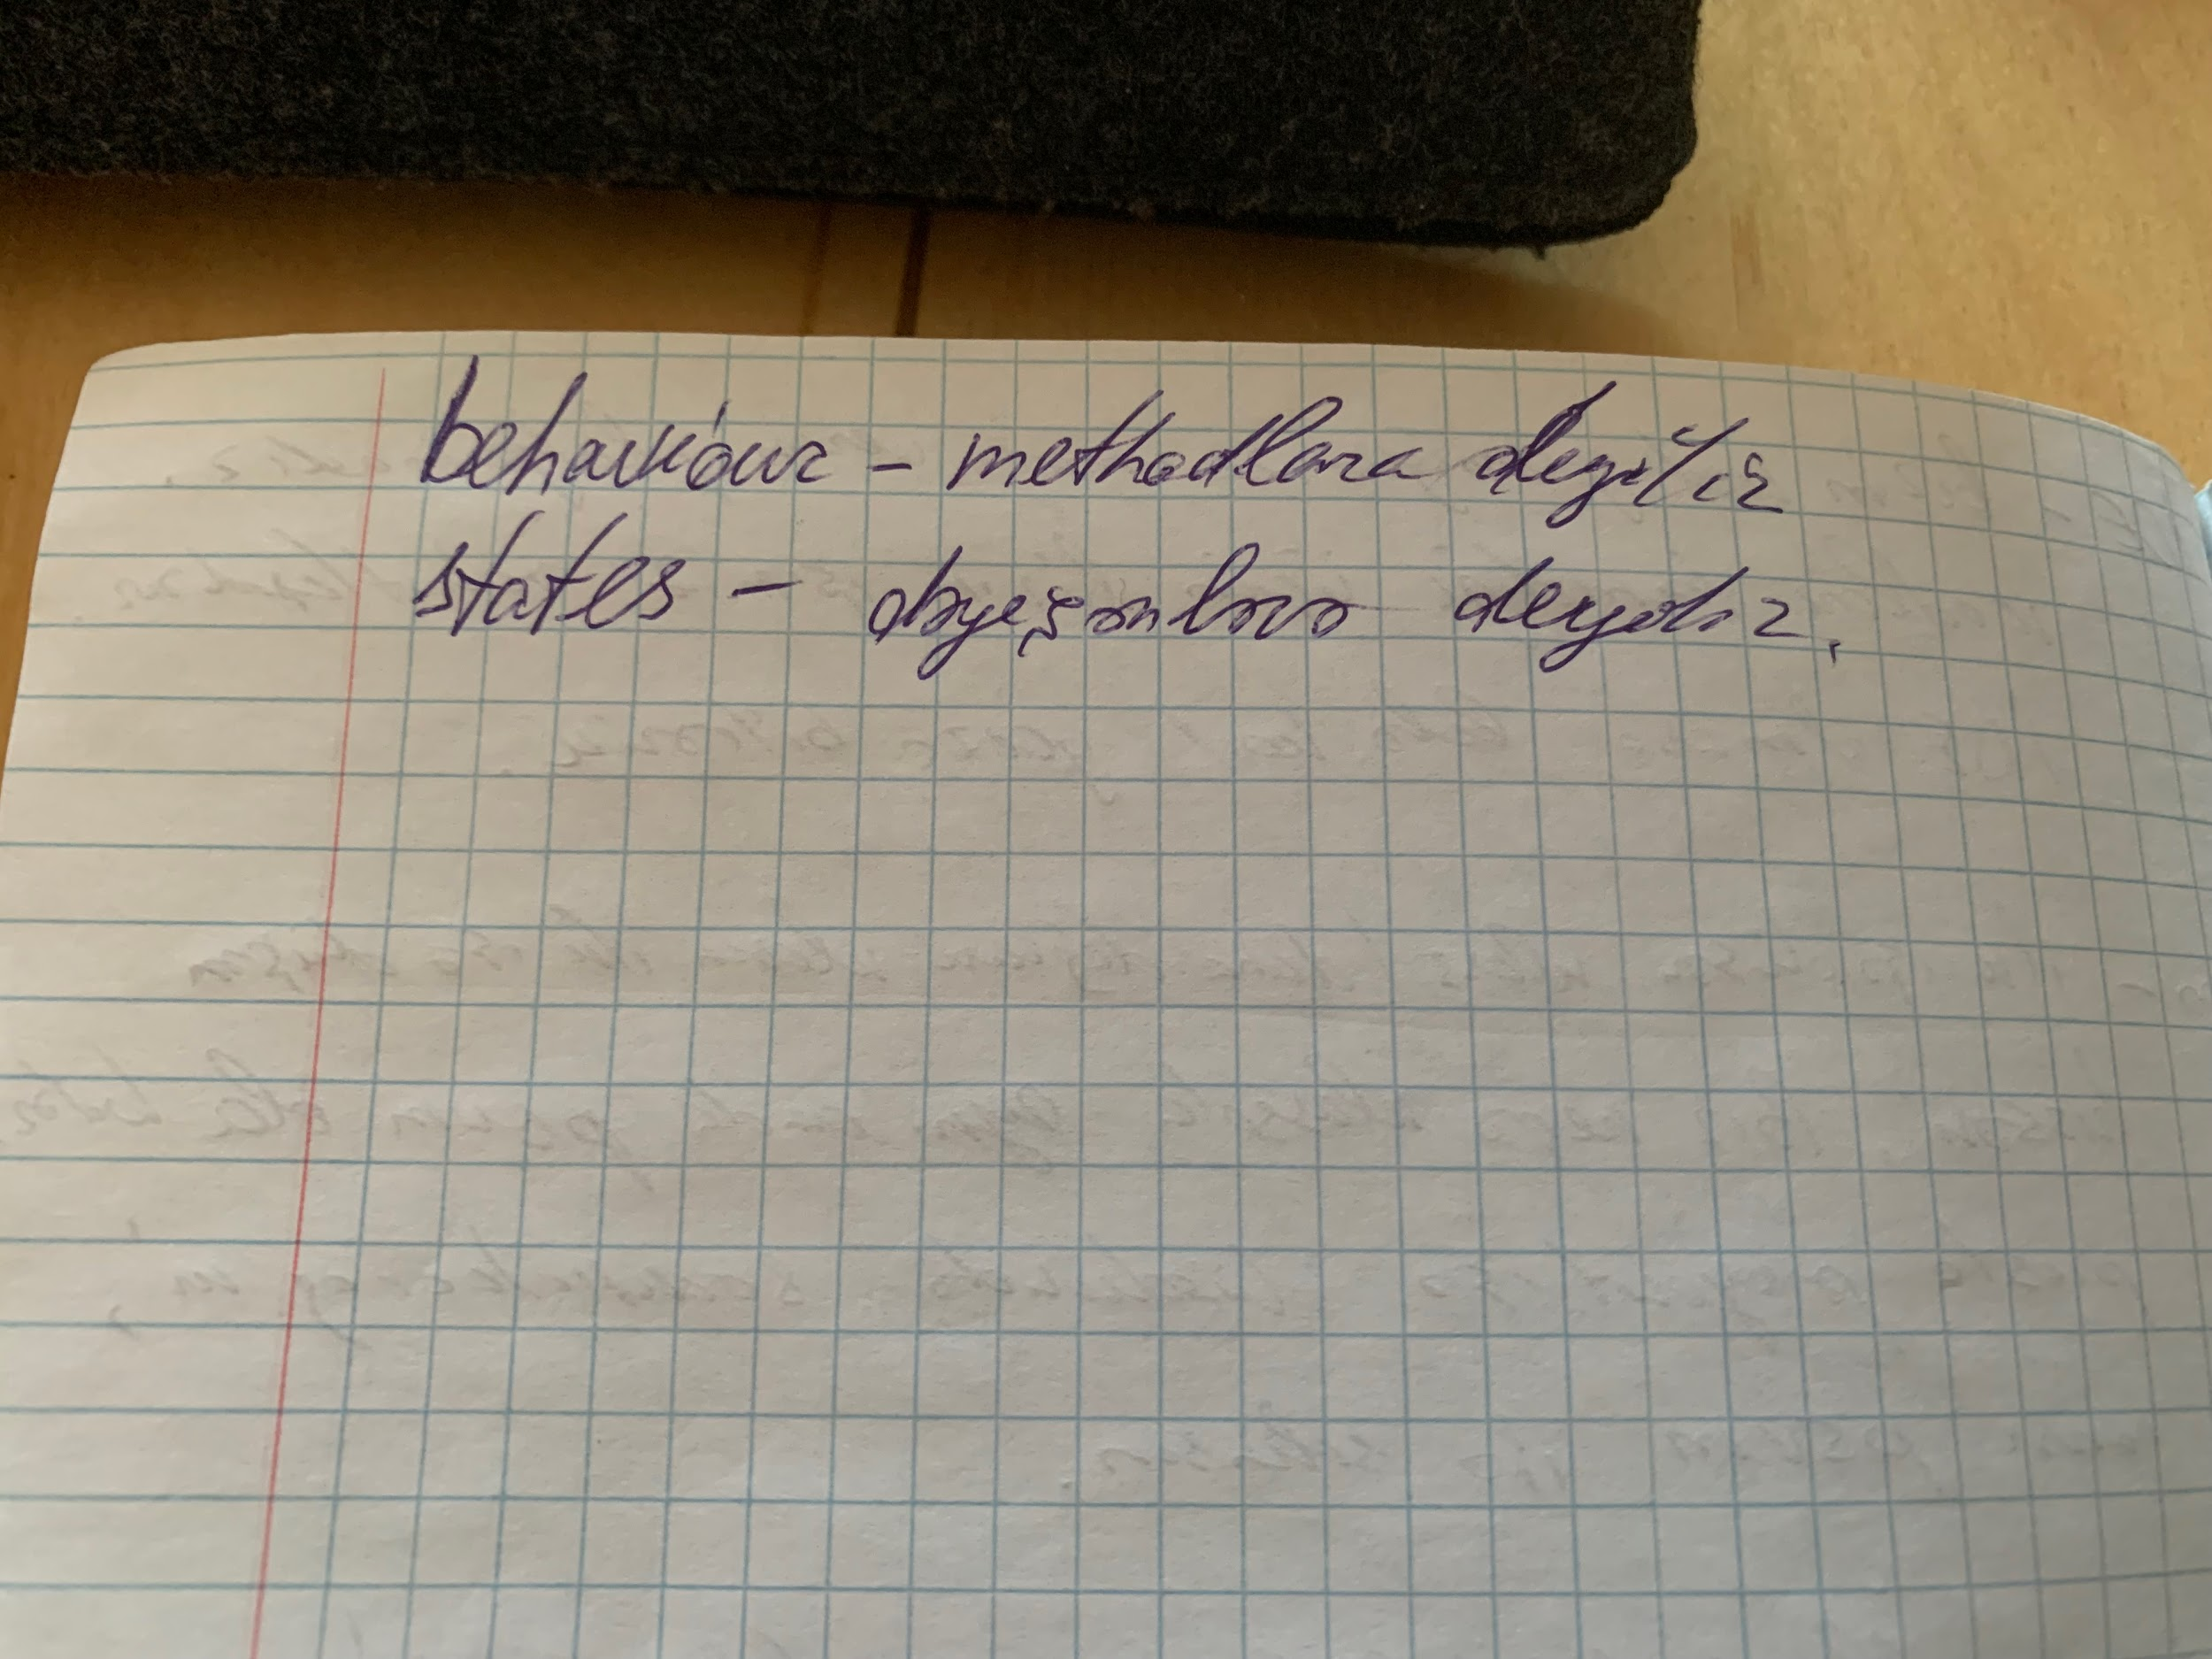 behaviour - methodlara deyilir
states - dəyişənlərə deyilir.